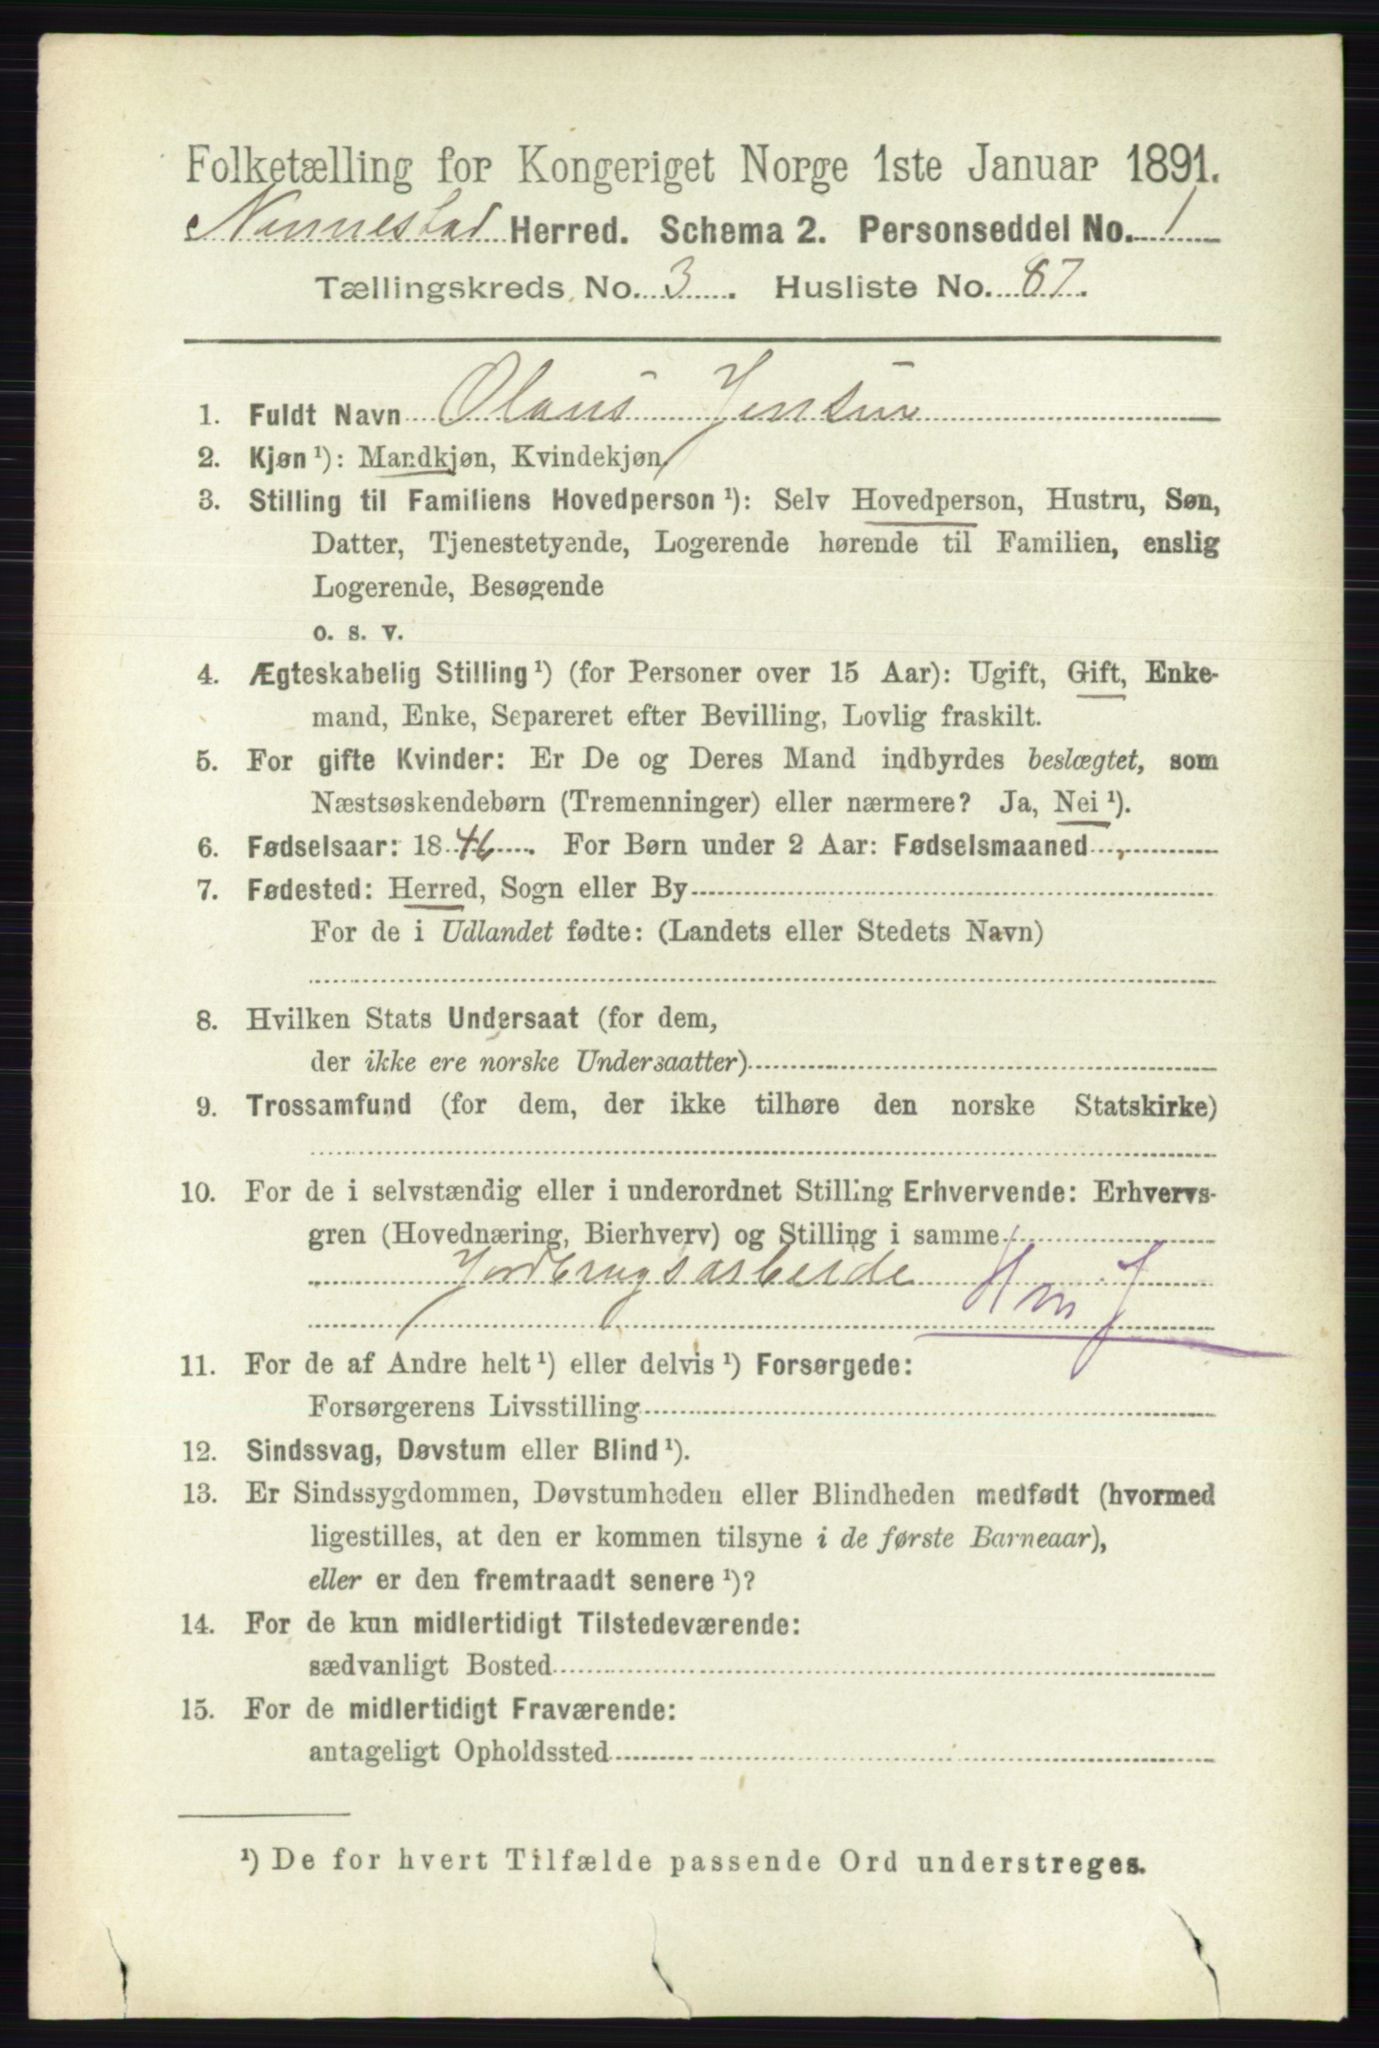 Folketælling for Kongeriget Norge 1ste Januar 1891.
Nannestad Herred. Schema 2. Personseddel No. 1
Tællingskreds No. 3. Husliste No. 87.
1. Fuldt Navn Olaus Jensen
2. Kjøn¹): Mandkjøn, Kvindekjøn
3. Stilling til Familiens Hovedperson¹): Selv Hovedperson, Hustru, Søn,
Datter, Tjenestetyende, Logerende hørende til Familien, enslig
Logerende, Besøgende
o. s. v.
4. Ægteskabelig Stilling¹) (for Personer over 15 Aar): Ugift, Gift, Enke-
mand, Enke, Separeret efter Bevilling, Lovlig fraskilt.
5. For gifte Kvinder: Er De og Deres Mand indbyrdes beslægtet, som
Næstsøskendebørn (Tremenninger) eller nærmere? Ja, Nei¹).
6. Fødselsaar: 1846. For Børn under 2 Aar: Fødselsmaaned
7. Fødested: Herred, Sogn eller By
For de i Udlandet fødte: (Landets eller Stedets Navn)
8. Hvilken Stats Undersaat (for dem,
der ikke ere norske Undersaatter)
9. Trossamfund (for dem, der ikke tilhøre den norske Statskirke)
10. For de i selvstændig eller i underordnet Stilling Erhvervende: Erhvervs-
gren (Hovednæring, Bierhverv) og Stilling i samme
Jordbrugsarbeide Hm J
11. For de af Andre helt¹) eller delvis¹) Forsørgede:
Forsørgerens Livsstilling
12. Sindssvag, Døvstum eller Blind¹).
13. Er Sindssygdommen, Døvstumheden eller Blindheden medfødt (hvormed
ligestilles, at den er kommen tilsyne i de første Barneaar),
eller er den fremtraadt senere¹)?
14. For de kun midlertidigt Tilstedeværende:
sædvanligt Bosted
15. For de midlertidigt Fraværende:
antageligt Opholdssted
¹) De for hvert Tilfælde passende Ord understreges.